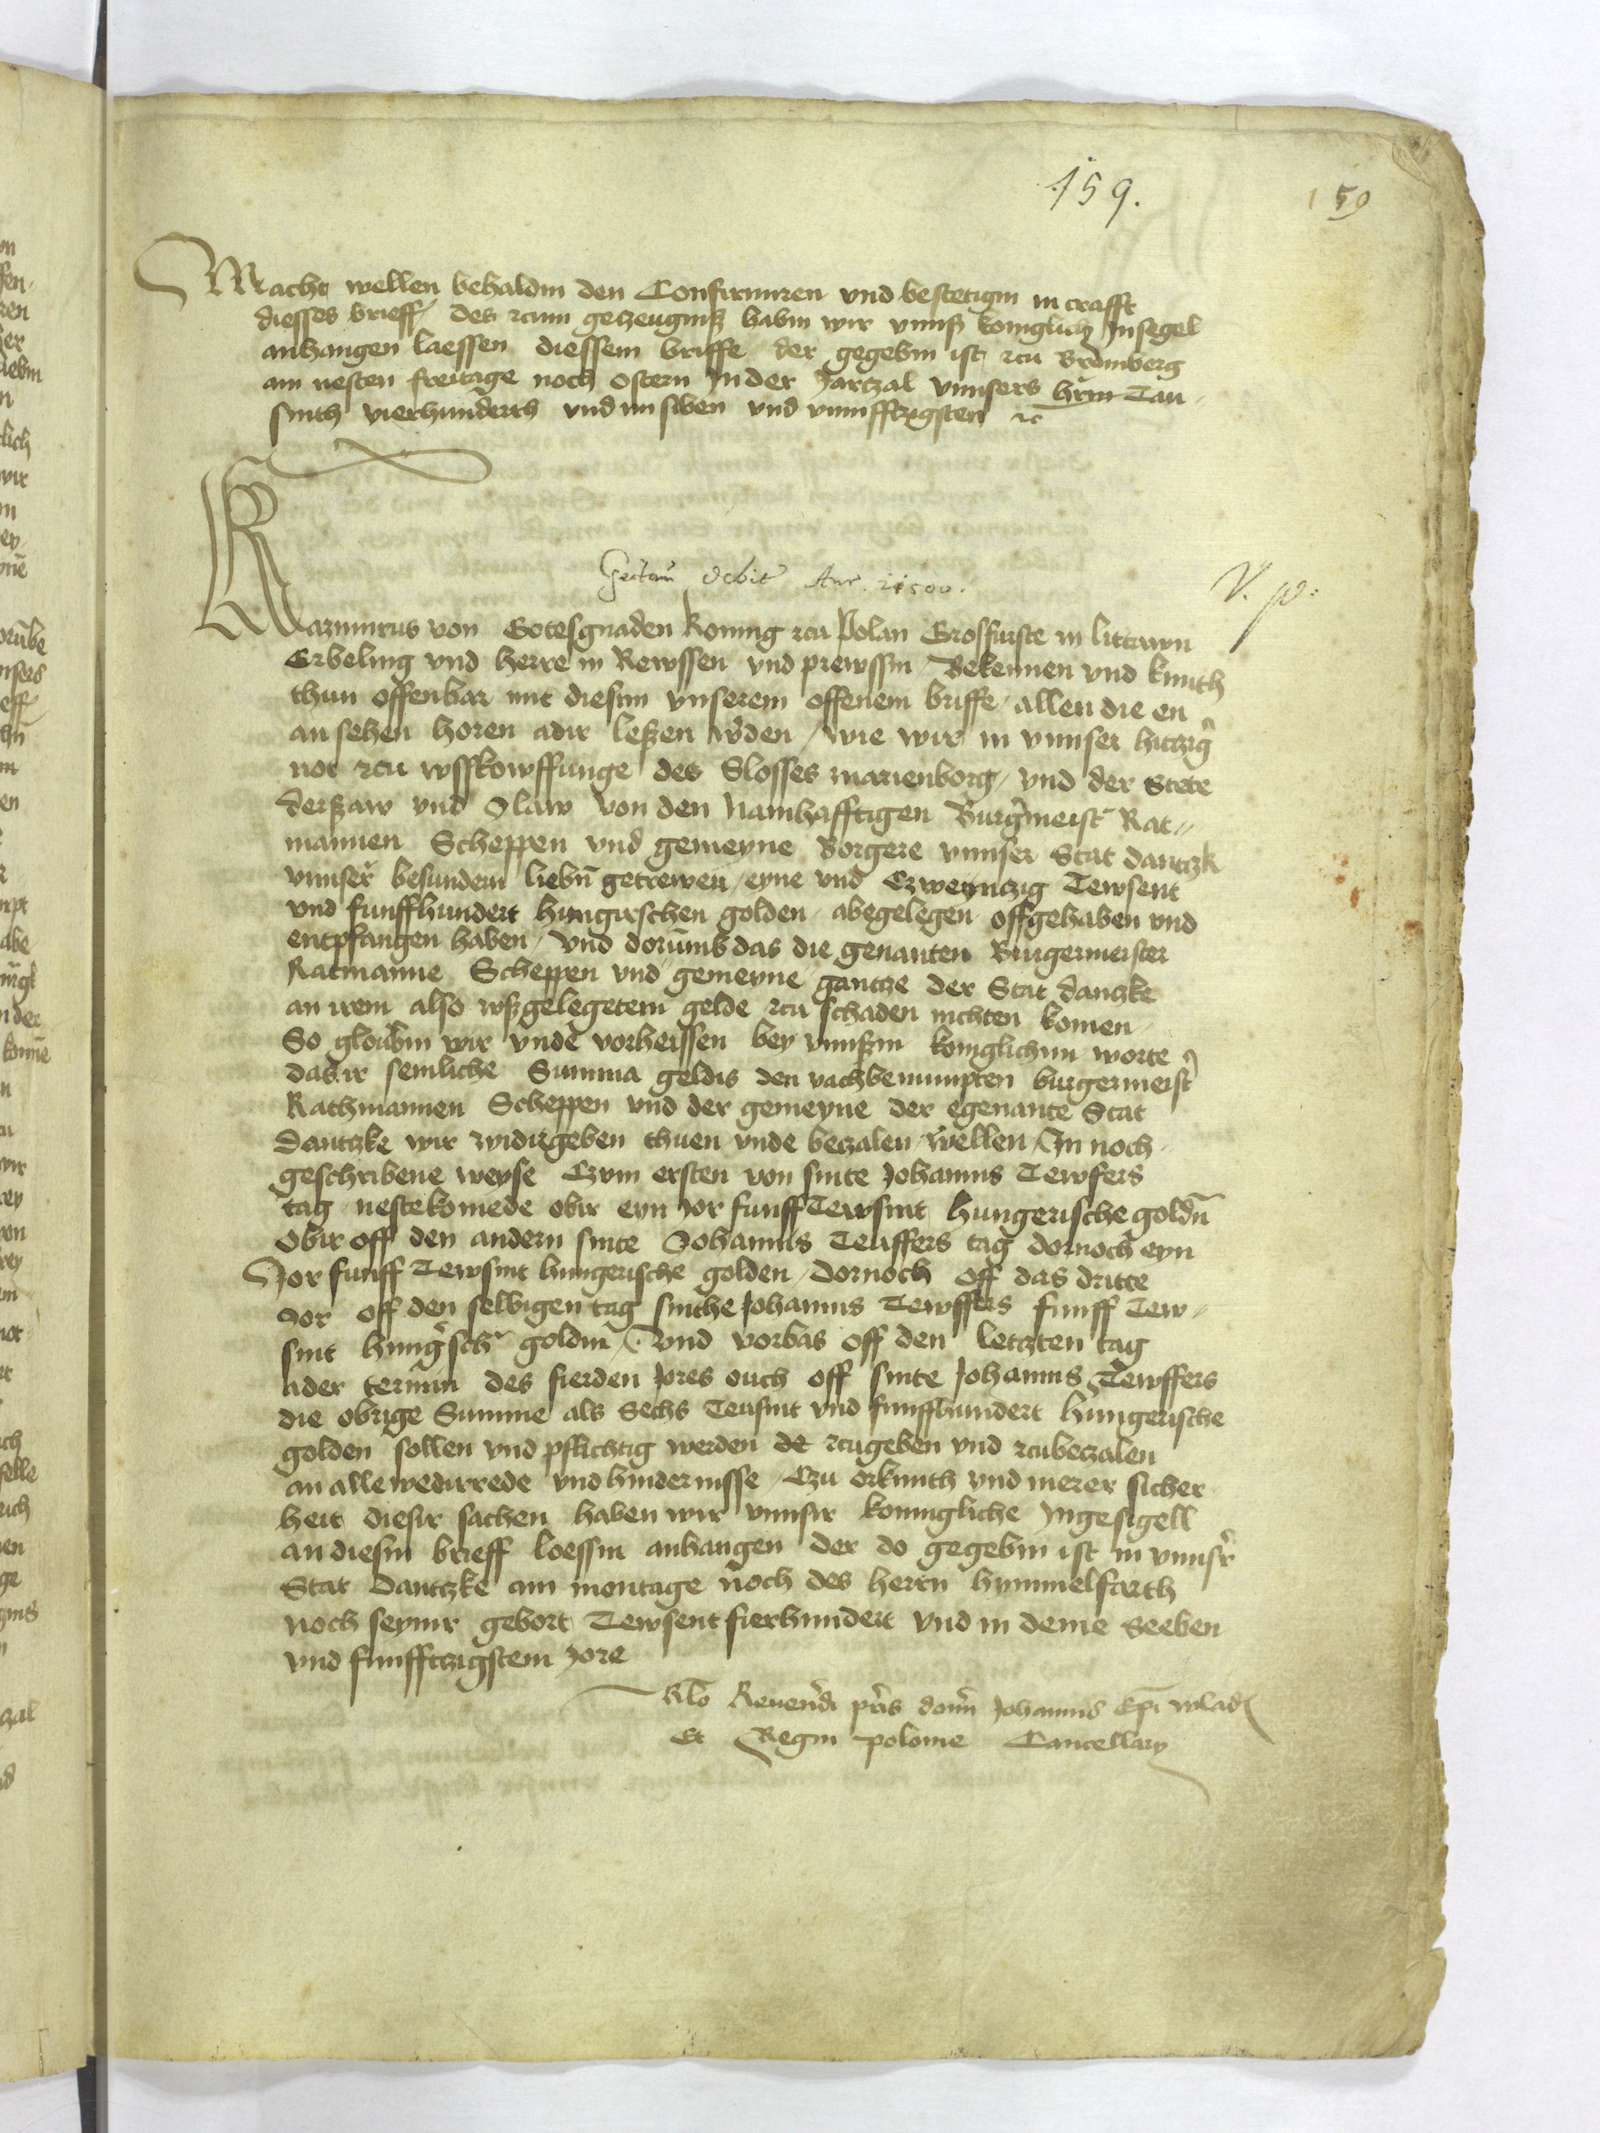 159.
159
Macht wellen behaldin den Confirmiren vnd bestetigin in crafft
diesses brieff, des czum geczeugnisz habin wir vnnsz koniglich Insigel
anhangen laessen diessem briffe der gegebin ist czu Bromberg
am nesten freitage noch ostern In der Jarczal vnnsers hrn Tau
sinth vierhunderth vnd im siben vnd vnnfftzigsten ꝛc
debit Aur. 21500.
V. p:
Kazimirus von Gotesgnaden Konnig czu Polan Grosfurste in littawn
Erbeling vnd herre in Rewssen vnd prewssin Bekennen vnd kunth
thun offenbar mit diesim vnserem offenem briffe, allen die en
an sehen horen adir leszen wden, wie wir in vnnser hitczig
not czu wsskowffunge des Slosses marienborg, vnd der Stete
derszaw vnd Slaw von den Namhafftigen Burgmeist Rat
mannen Scheppen vnd gemeyne Borgere vnnser Stat dantzk
vnnser besundern liebn getrewen, eyne vnd Czwentzig Tewsent
vnd funffhundert hungirschen golden, abegelegen offgehaben vnd
entpfangen haben, vnd dorumb das die genanten Burgermeister
Ratmanne Scheppen vnd gemeyne gantze der Stat danzke
an irem also wszgelegetem gelde czu schaden nichten komen,
So gloubin wir vnde vorheissen bey vnnszin koniglichim worte
das ir semliche Summa geldis den vachbenumpten burgermeist
Rathmannen Scheppen vnd der gemeyne der egenante Stat
dantzke wir widirgeben thuen vnde beczalen wellen, In noch
geschribene weyse Czum ersten von sinte Johannis Tewfers
tag nestekomede obir eyn Jor funff Tewsint hungerische goldn
Obir off den andern sinte Johannis Teuffers tag dornoch eyn
Jor funff Tewsint hungerische golden, dornoch off das dritte
Jor off den selbigen tag sinthe Johannis Tewffers funff Tew
sint hungsch goldin, vnd vorbas off den letzten tag
ader termin des fierden Jores ouch off sinte Johannis Tewffers
die obrige Summe als Sechs Teusint vnd funffhundert hungerische
golden sollen vnd pflichtig werden de czugeben vnd czubeczalen
an alle wedirrede vnd hindernisse, Czu orkunth vnd merer sicher
heit diesir sachen haben wir vnnsir konnigliche Ingesigell
an diesin brieff loessin anhangen der do gegebin ist in vnnsr
Stat Dantzke am montage noch des herrn hymmelfarth
noch seynir gebort Tewsent fierhundert vnd in deme Seeben
vnd funfftzigstem Jore
Rlo Reuerdi pris domi Johannis Epi wlad
Et Regni polonie Cancellary